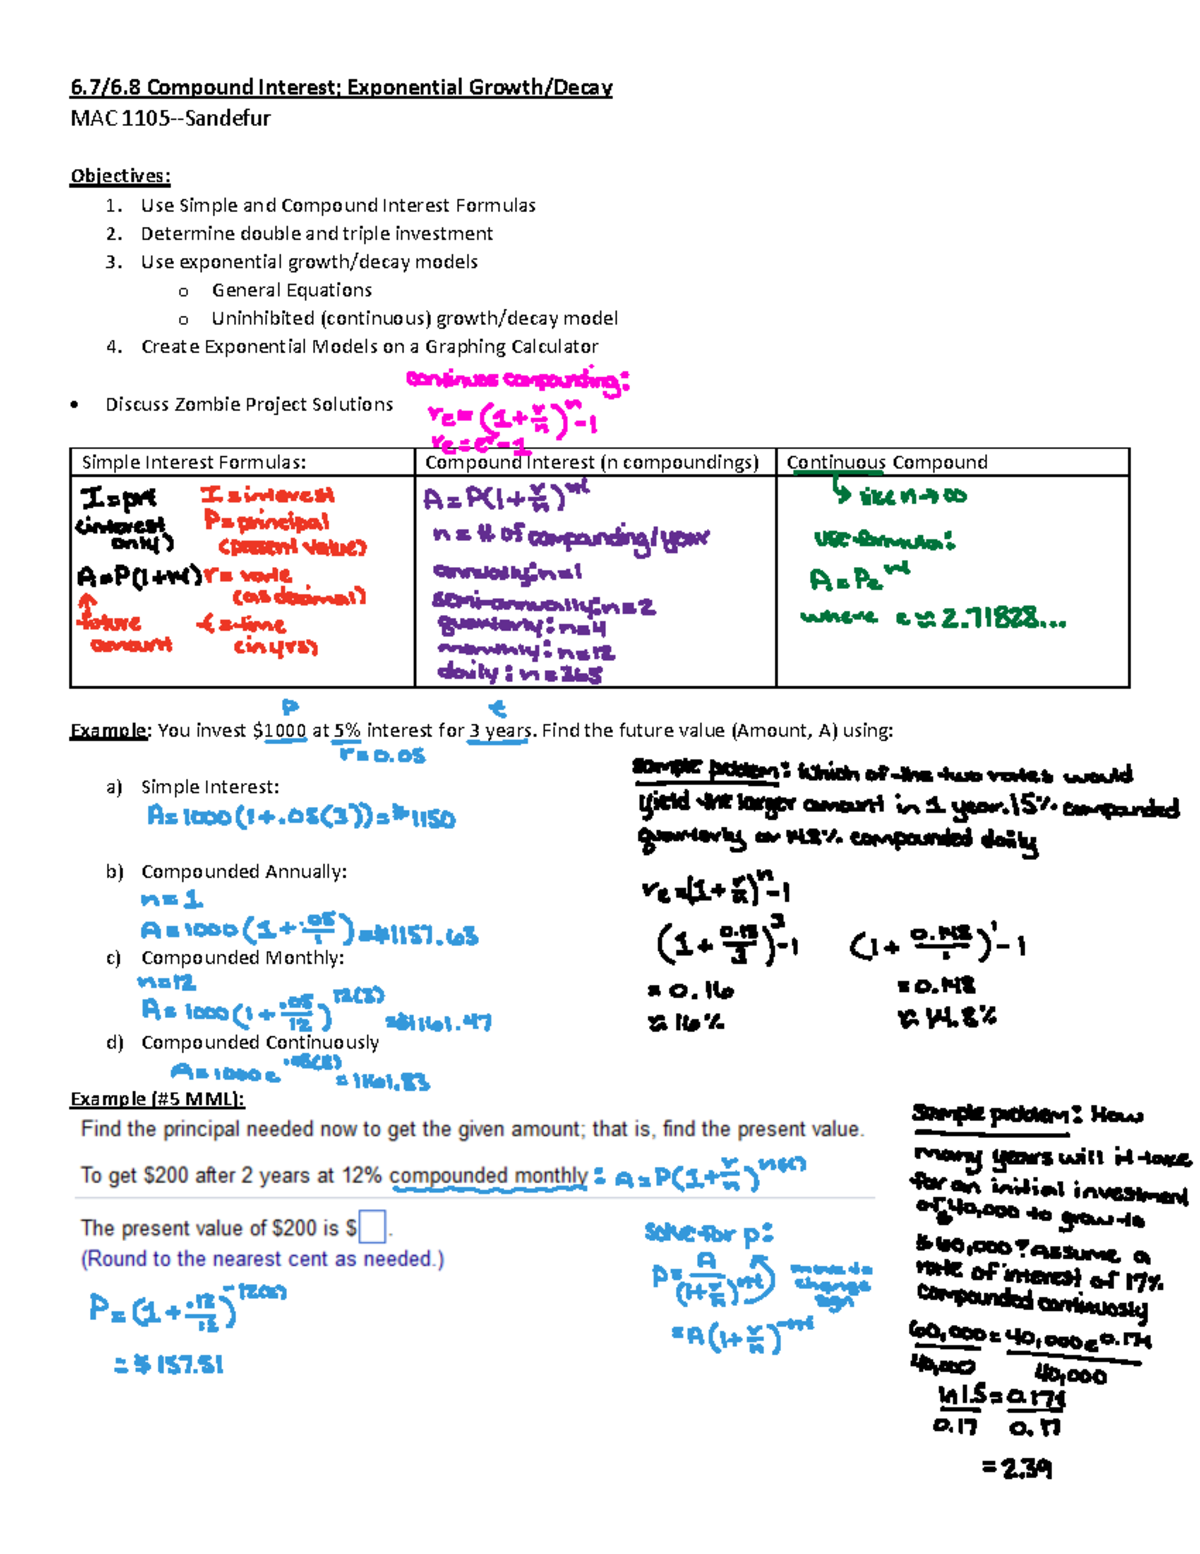 6.7/6.8 Compound Interest; Exponential Growth/Decay
MAC 1105--Sandefur
Objectives:
1. Use Simple and Compound Interest Formulas
2. Determine double and triple investment
3. Use exponential growth/decay models
o General Equations
o Uninhibited (continuous) growth/decay model
4. Create Exponential Models on a Graphing Calculator
continues compounding:
• Discuss Zombie Project Solutions
re = (1 + r/n)^n - 1
re = e^r - 1
Simple Interest Formulas:
I = prt
(interest only)
I = interest
P = principal
(present value)
A = P(1+rt)
r = rate
(as decimal)
future amount
t = time
(in yrs)
Compound Interest (n compoundings)
A = P(1 + r/n)^nt
n = # of compounding/year
annually: n=1
semi-annually: n=2
quarterly: n=4
monthly: n=12
daily: n=365
Continuous Compound
like n → ∞
use formula:
A = Pe^rt
where e ≈ 2.71828...
P t
Example: You invest $1000 at 5% interest for 3 years. Find the future value (Amount, A) using:
r = 0.05
a) Simple Interest:
A = 1000(1+.05(3)) = $1150
b) Compounded Annually:
n = 1
A = 1000(1 + .05/1) = $1157.63
c) Compounded Monthly:
n=12
A = 1000(1 + .05/12)^12(3) = $1161.47
d) Compounded Continuously
A = 1000e^.05(3) = 1161.83
Sample problem: Which of the two rates would
yield the larger amount in 1 year. 15% compounded
quarterly or 14.8% compounded daily
re = (1 + r/n)^n - 1
(1 + 0.15/3)^3 - 1
= 0.16
≈ 16%
(1 + 0.148/1)^1 - 1
= 0.148
≈ 14.8%
Example (#5 MML):
Find the principal needed now to get the given amount; that is, find the present value.
To get $200 after 2 years at 12% compounded monthly : A = P(1 + r/n)^n(t)
The present value of $200 is $ .
(Round to the nearest cent as needed.)
P = (1 + .12/12)^-12(2)
= $157.51
solve for p:
P = A/(1 + r/n)^nt
move to change sign
= A(1 + r/n)^-nt
Sample problem: How
many years will it take
for an initial investment
of 40,000 to grow to
$60,000? Assume a
rate of interest of 17%
compounded continuously
60,000/40,000 = 40,000e^0.17t/40,000
ln1.5/0.17 = 0.17t/0.17
= 2.39